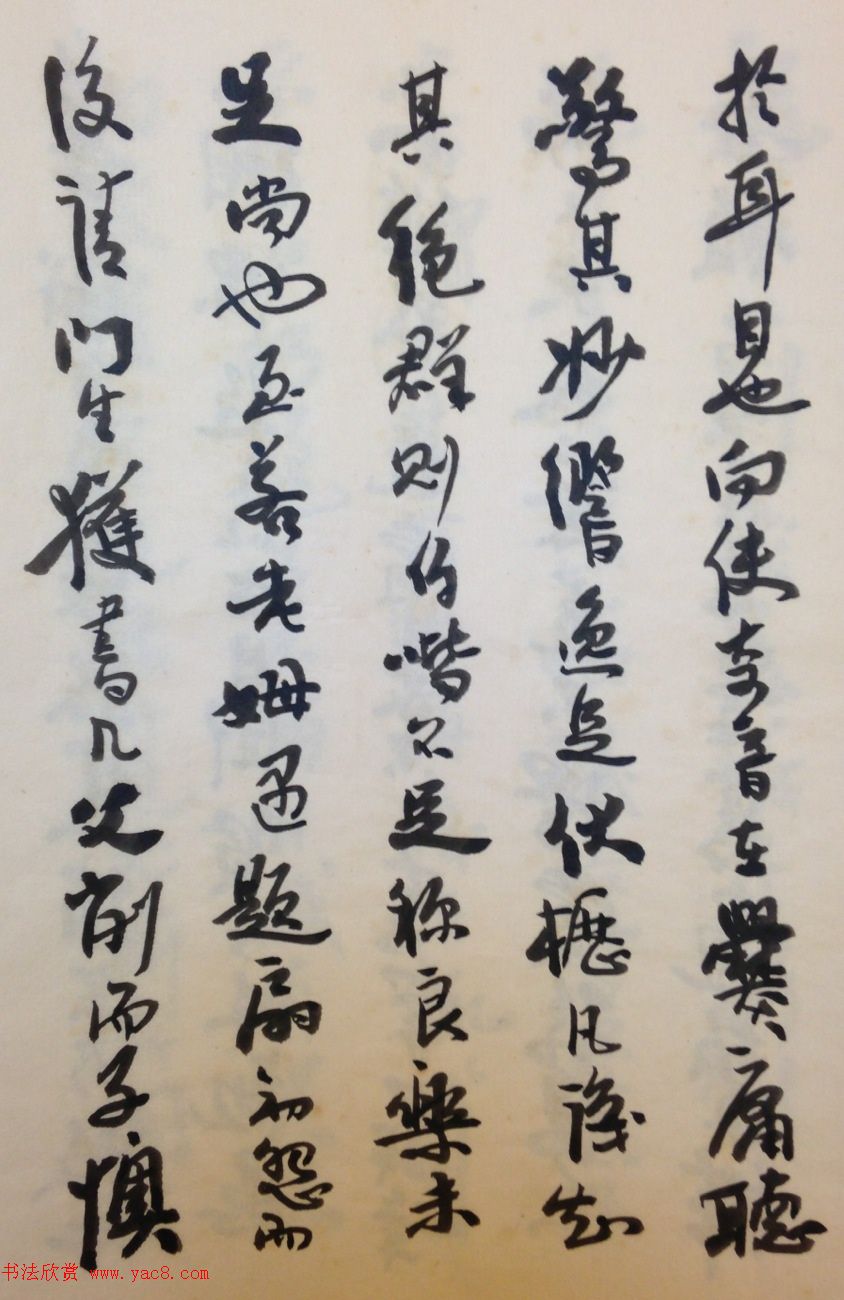 於耳目也向使奇音在爨庸聽
驚其妙響逸足伏櫪凡識知
其絕群則伯喈不足稱良樂未
足尚也至若老姆遇題扇初怨而
後請門生獲書几父削而子懊
书法欣赏 www.yac8.com